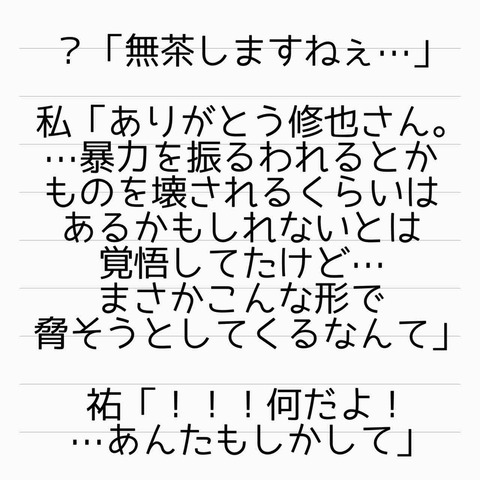 ？「無茶しますねぇ…」
私「ありがとう修也さん。
…暴力を振るわれるとか
ものを壊されるくらいは
あるかもしれないとは
覚悟してたけど…
まさかこんな形で
脅そうとしてくるなんて」
祐「！！！何だよ！
…あんたもしかして」